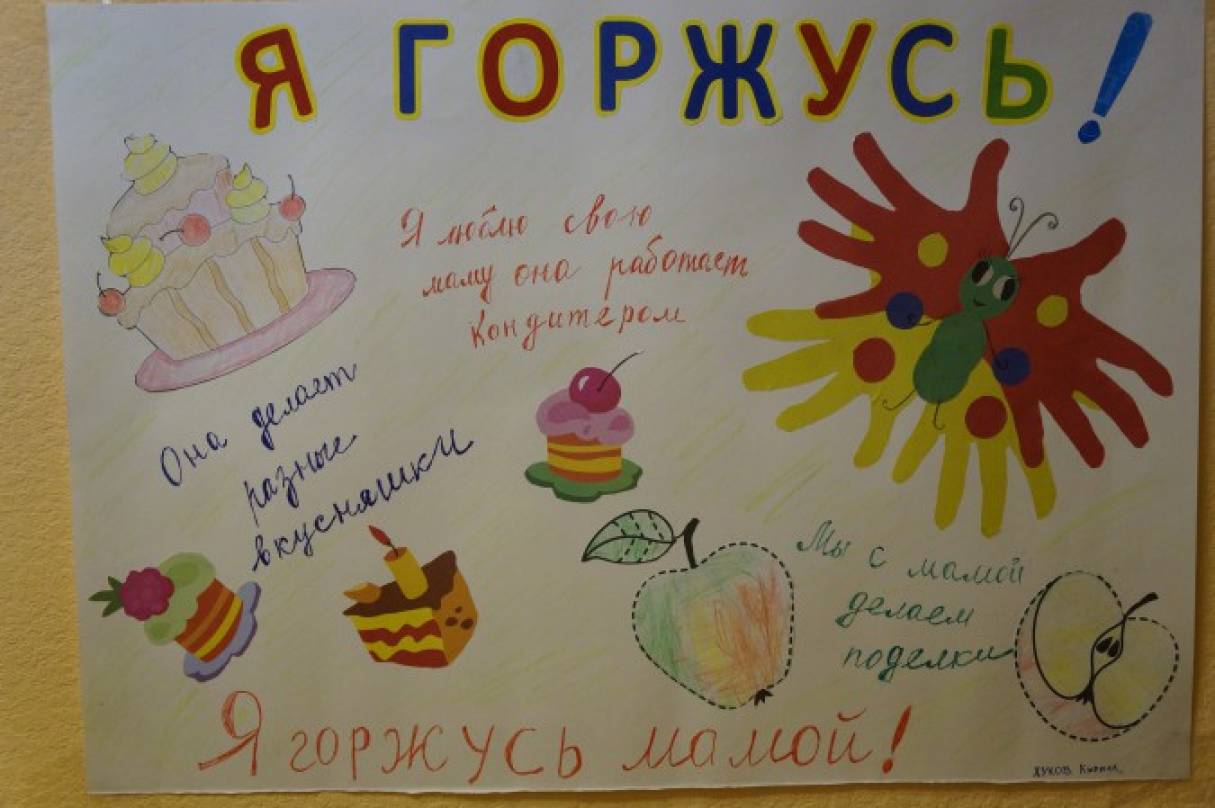 Я ГОРЖУСЬ!
Я люблю свою
маму она работает
кондитером
Она делает
разные
вкусняшки
Мы с мамой
делаем
поделки
Я горжусь мамой!
Жуков Кирилл